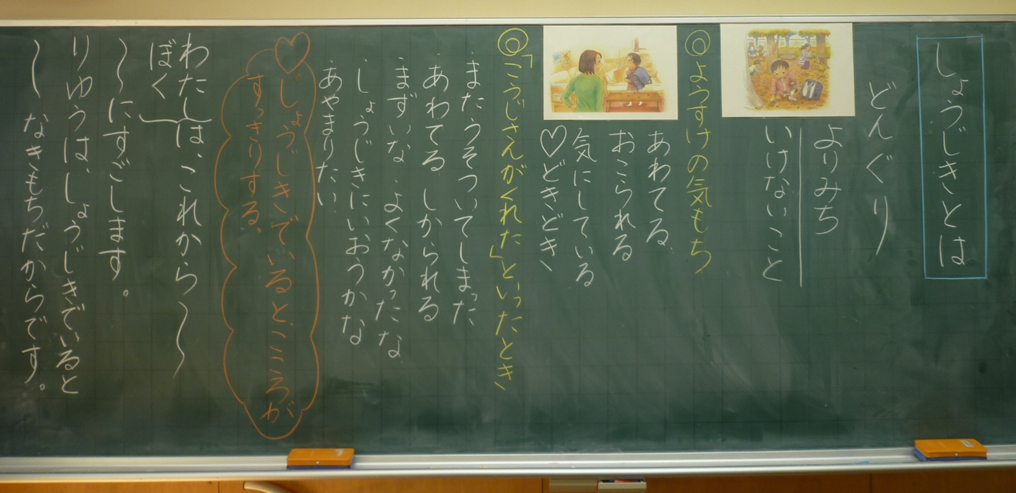 しょうじきとは
どんぐり
よりみち
いけないこと
◎ようすけの気もち
あわてる。
おこられる
気にしている
♡どきどき
◎「こうじさんがくれた」といったとき
またうそついてしまった
あわてる しかられる
まずいな・よくなかったな
しょうじきにいおうかな
あやまりたい
♡しょうじきでいるとこころが
すっきりする。
わたしは、これから〜
ぼく
〜にすごします。
りゆうは、しょうじきでいると
〜なきもちだからです。